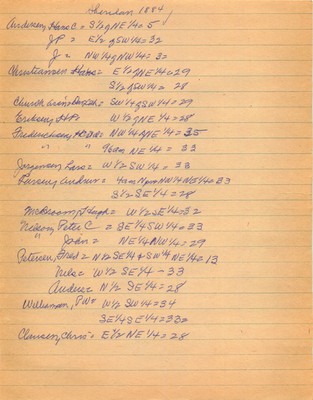 Sheridan 1884
Andersen, Hans C = S½ of NE¼ = 5
" J P = E½ of SW¼ = 32
" J = NW¼ of NW¼ = 32
Christiansen Hans = E½ of NE¼ = 29
S½ of SW¼ = 28
Church = SW¼ of SW¼ = 29
Eriksen, H.P. W½ of NE¼ = 28
NW¼ of NE¼ = 35
" " NE¼ = 33
Jorgensen Lars = W½ SW¼ = 33
Larsen, Andrew = NW¼ NE¼ = 33
S½ SE¼ = 28
McKroom, Hugh = W½ SE¼ = 32
Nielsen, Peter C = SE¼ SW¼ = 33
" John = NE¼ NW¼ = 29
Petersen, Fred = N½ SE¼ & SW¼ NE¼ = 13
Nels = W½ SE¼ - 33
Andrew = N½ SE¼ = 28
Williamson, P W = W½ SW¼ = 34
SE¼ SE¼ = 33
Clausen, Chris = E½ NE¼ = 28